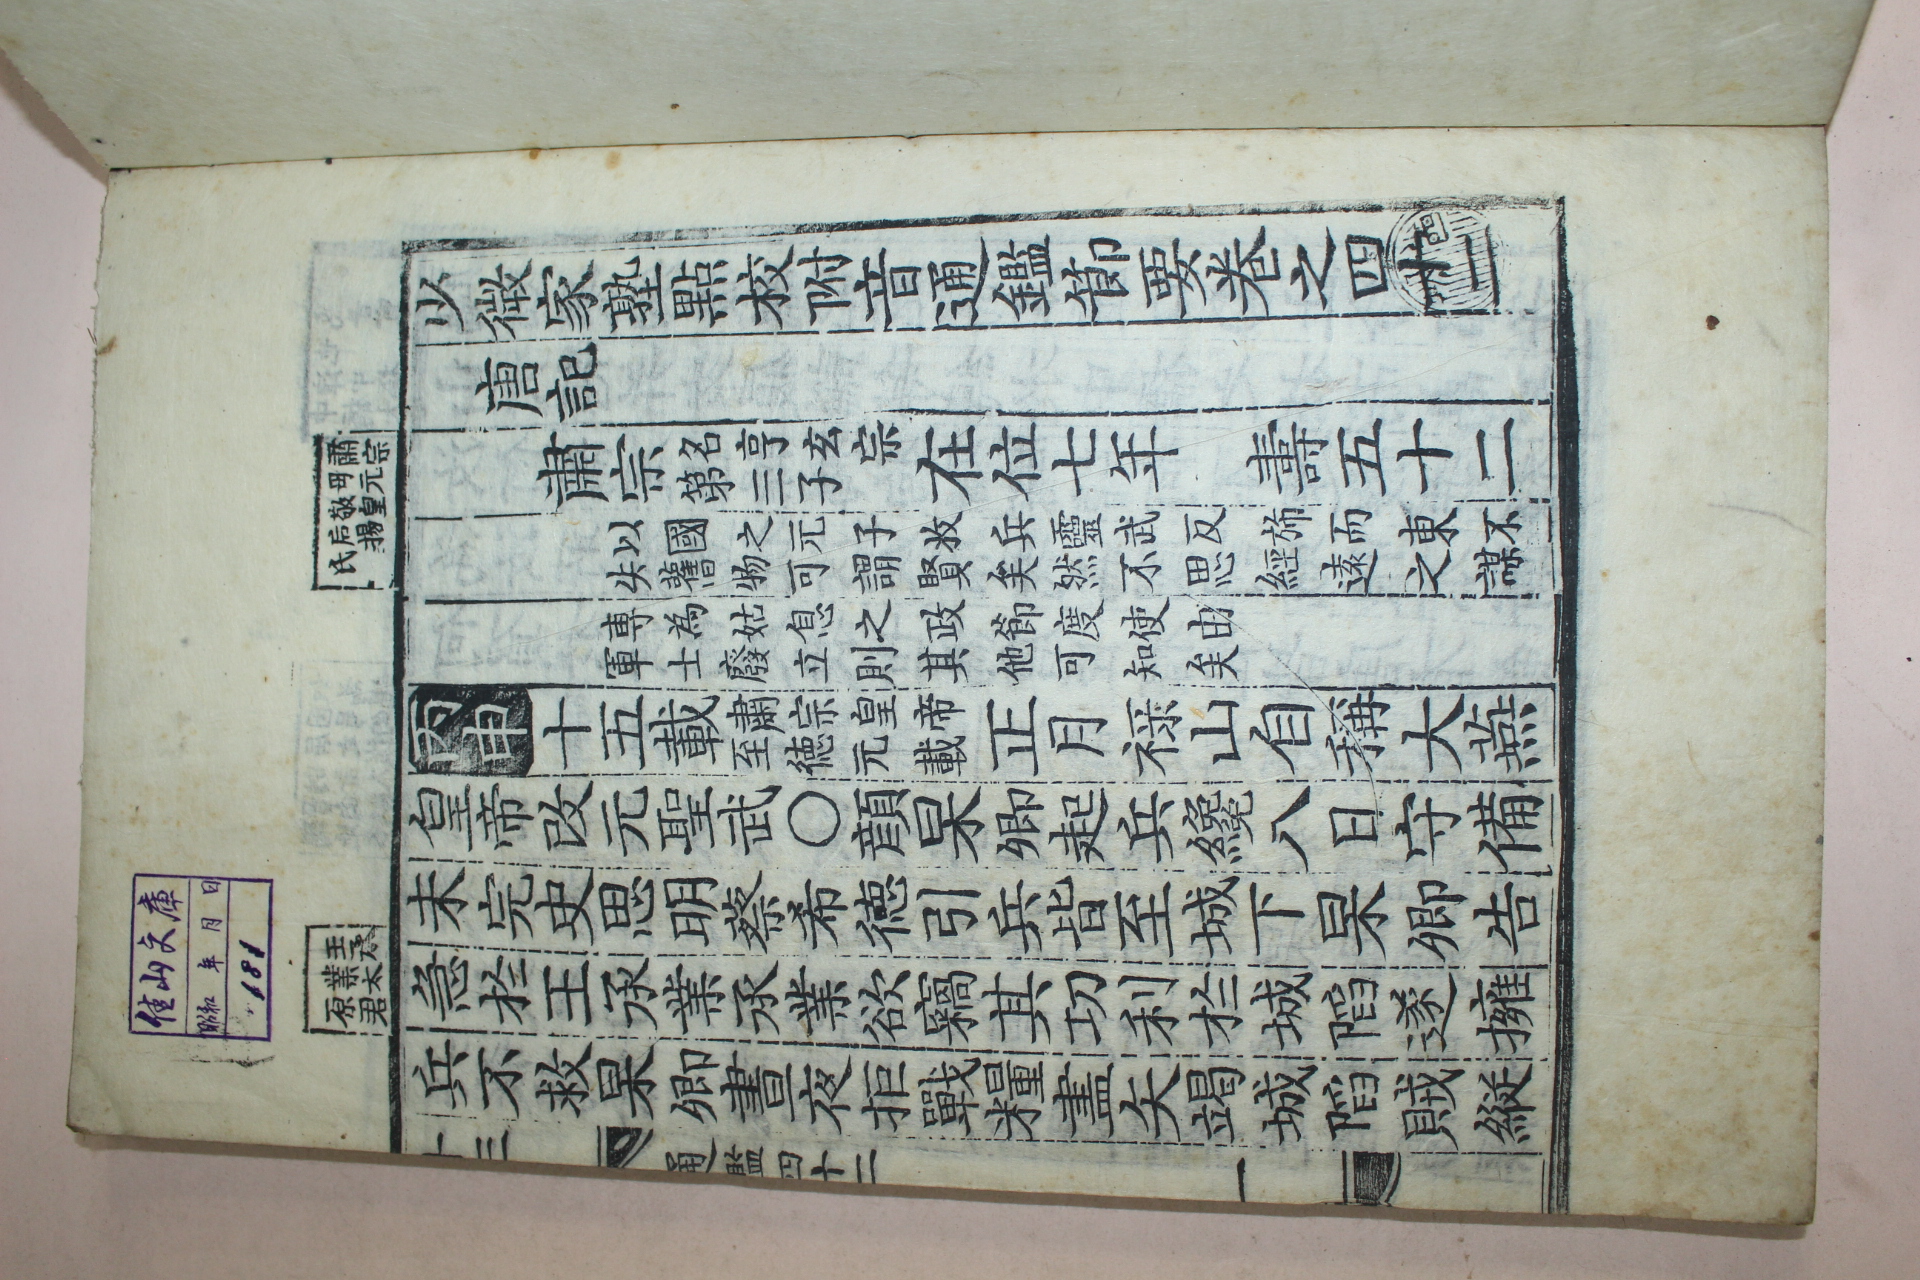 少微家塾點校附音通鑑節要卷之四十二
唐記
肅宗
名亨玄宗
第三子
在位七年　壽五十二
以國之元子收兵靈武反旆而東不
失舊物可謂賢矣然不思經遠之謀
專為姑息之政節度使由
軍士廢立則其他可知矣
丙申十五載
肅宗皇帝
至德元載
正月祿山自稱大燕
皇帝改元聖武○顏杲卿起兵纔八日守備
未完史思明蔡希德引兵皆至城下杲卿告
急於王承業承業欲竊其功利於城陷遂擁
兵不救杲卿晝夜拒戰糧盡矢竭城陷賊縱
通鑑四十二
一
肅宗
母元
敬皇
后楊
氏
王承
業太
原君
佳山文庫
昭和 年 月 日